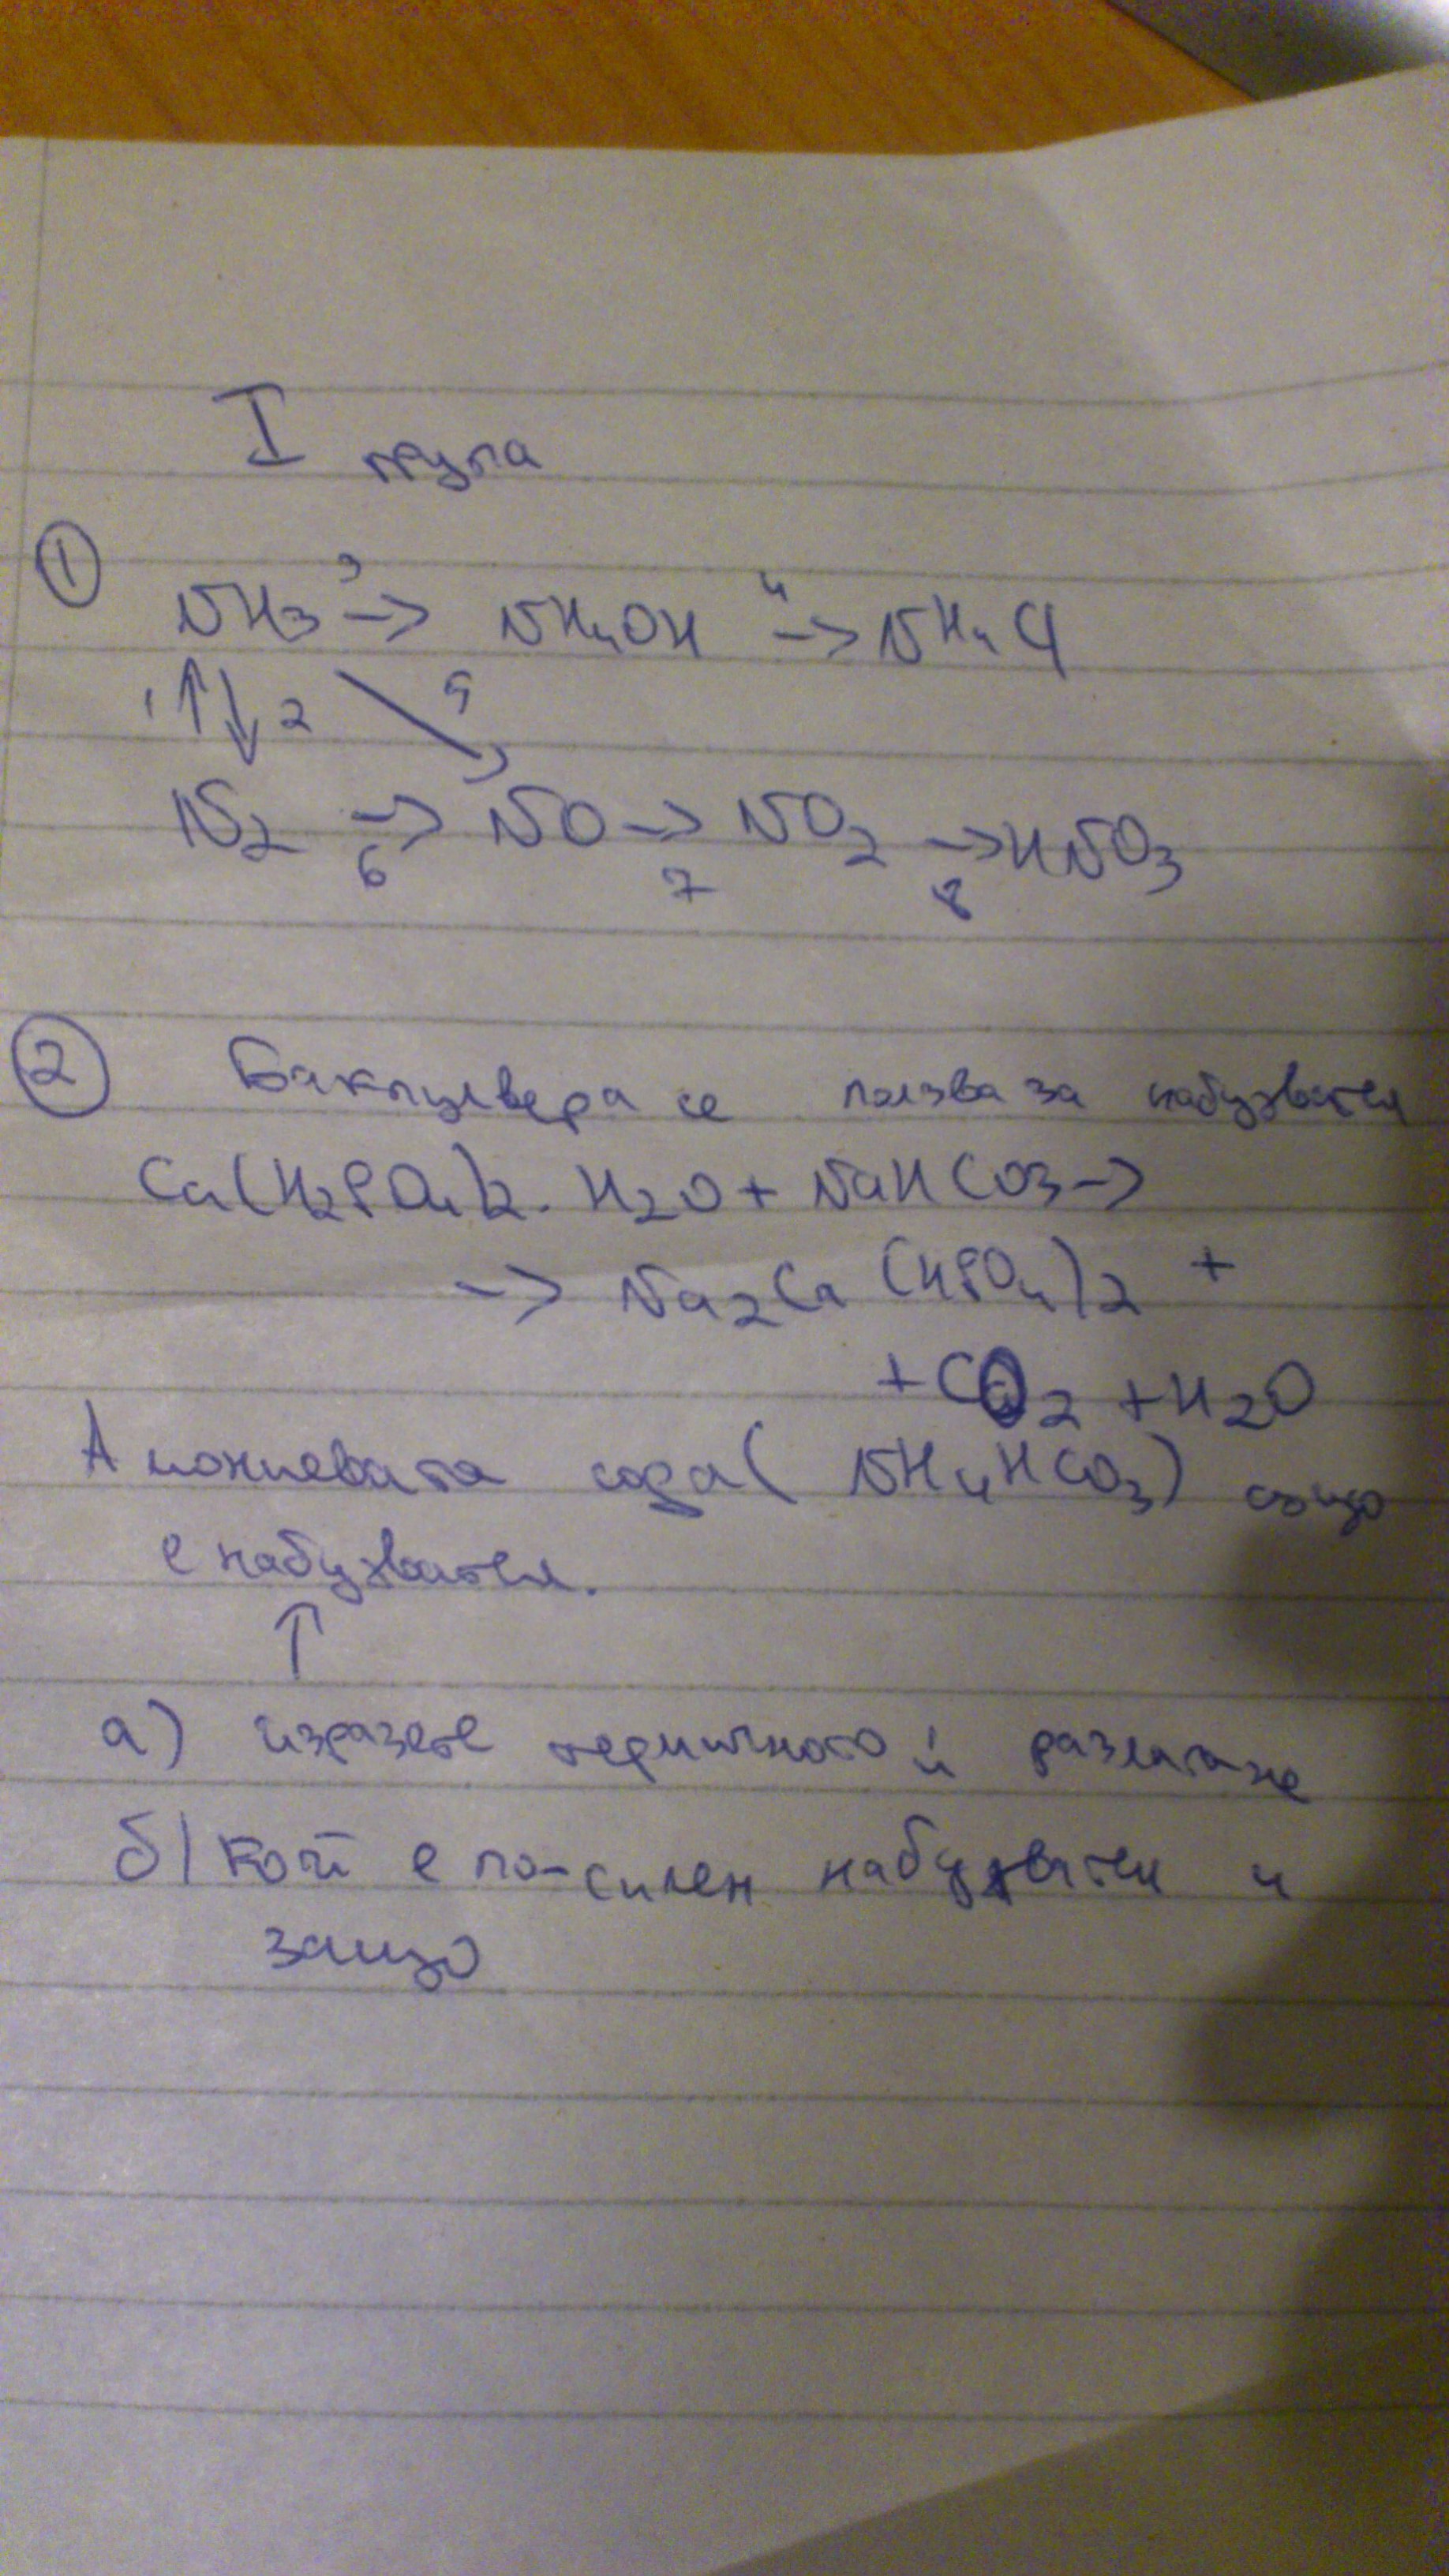 I група
① NH3 3→ NH4OH 4→ NH4Cl
1 ↑↓ 2 ↘ 5
N2 →6 NO →7 NO2 →8 HNO3
② Бакпулвера се ползва за набухвател
Ca(H2PO4)2 . H2O + NaHCO3 →
→ Na2Ca (HPO4)2 +
+ CO2 + H2O
Амониевата сода ( NH4HCO3) също
е набухвател.
↑
а) изразете термичното ѝ разлагане
б) кой е по-силен набухвател и
защо